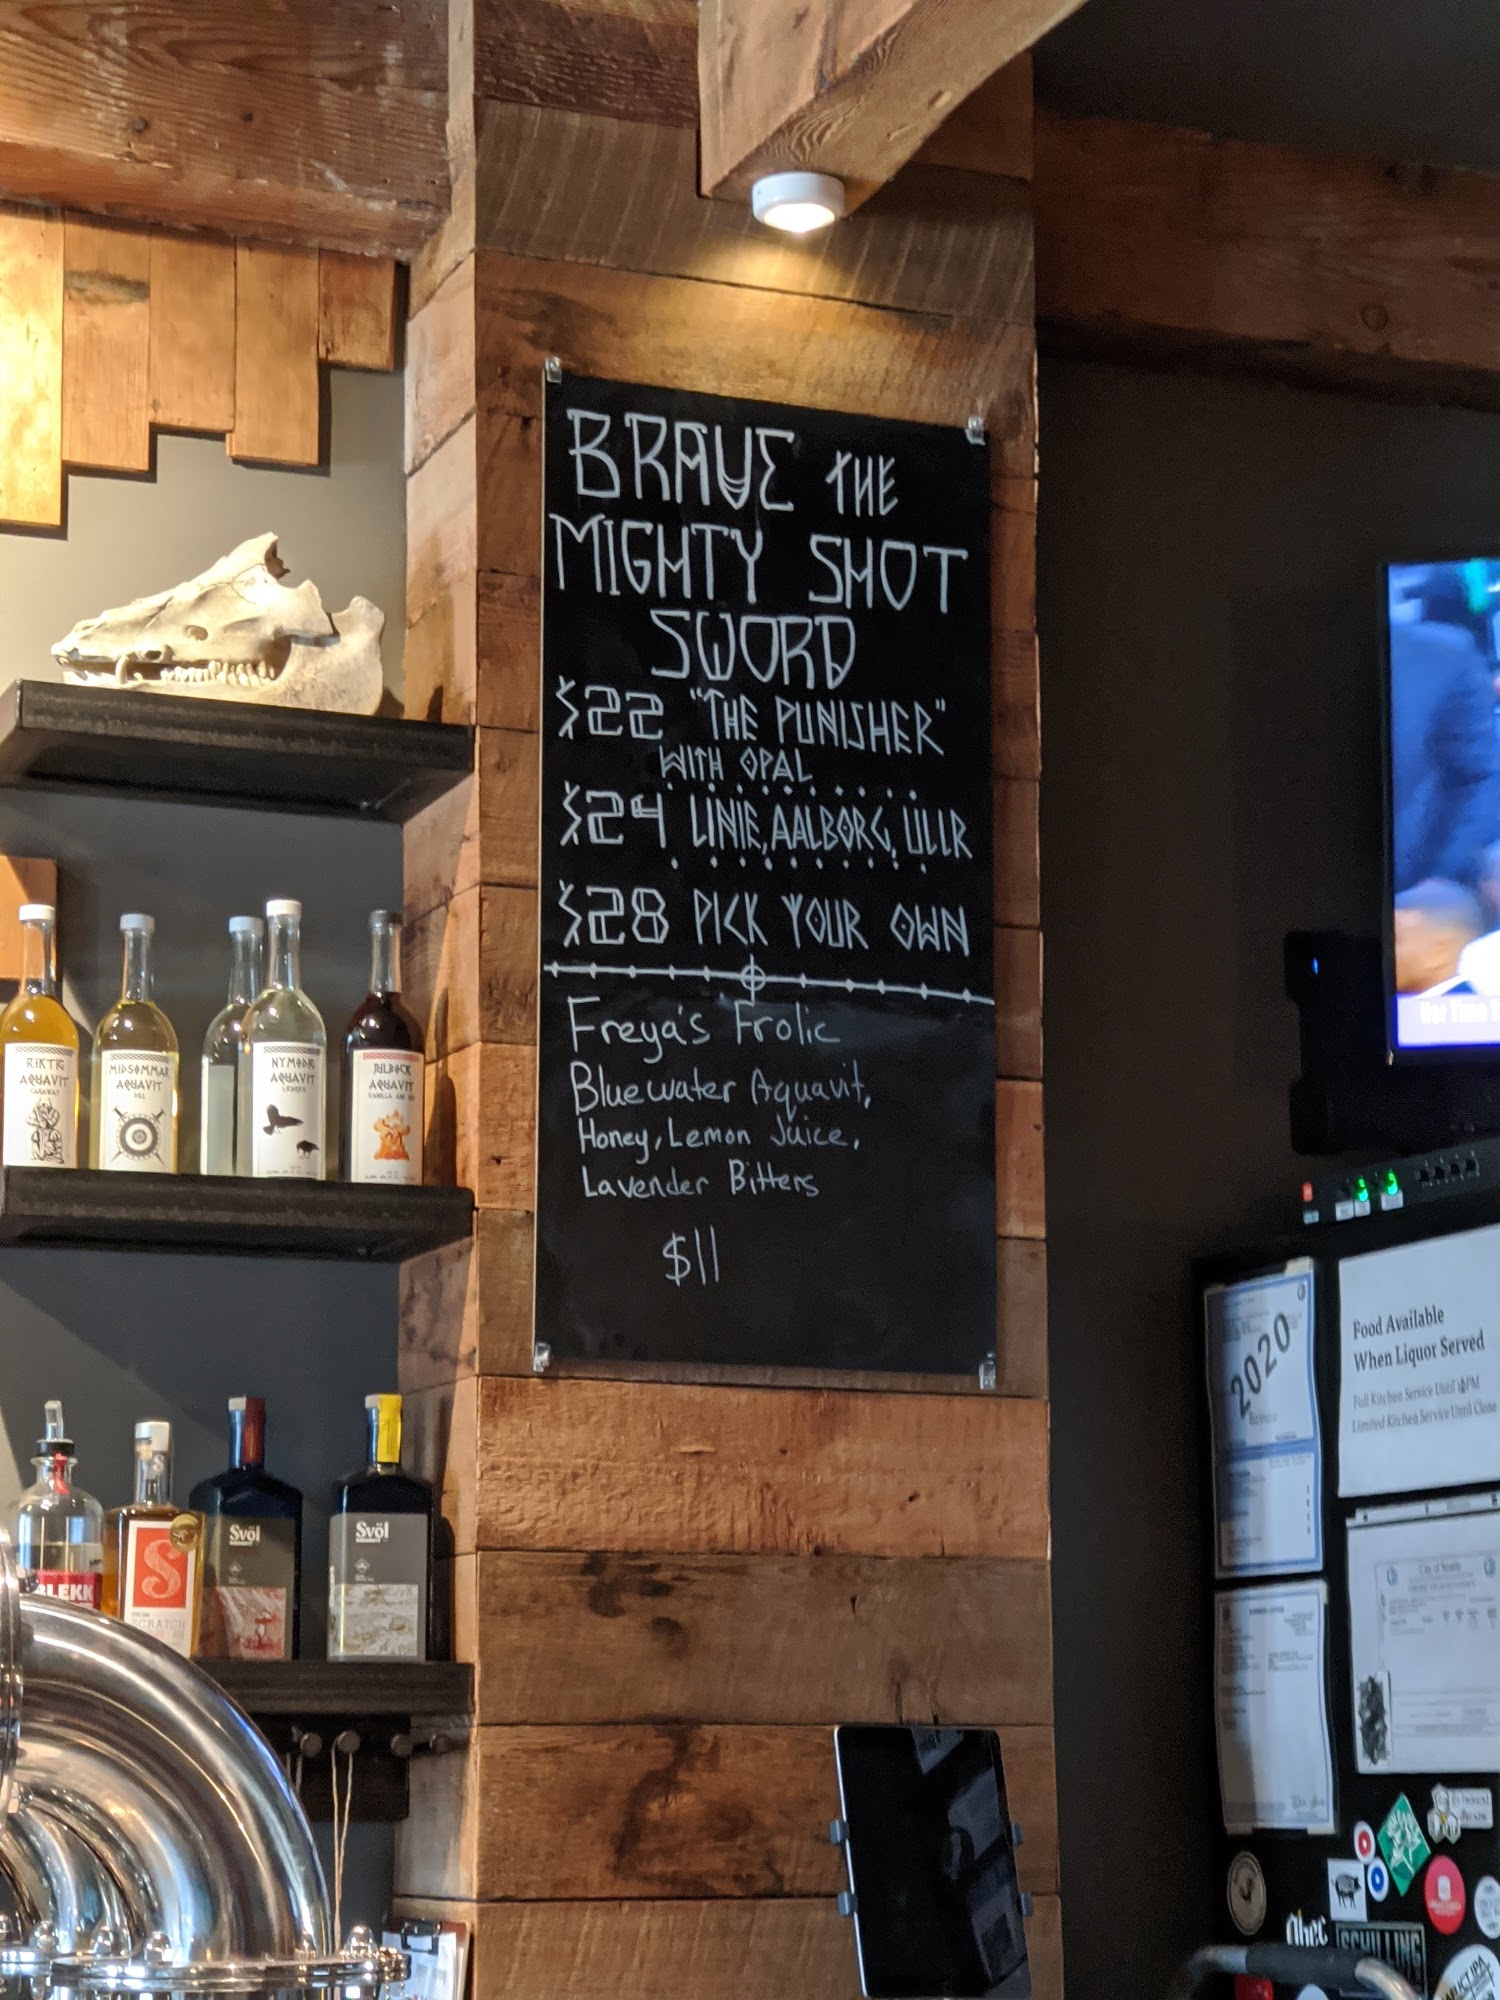 BRAVE THE
MIGHTY SHOT
SWORD
$22 "THE PUNISHER"
WITH OPAL
$24 LINIE, AALBORG, ULLR
$28 PICK YOUR OWN
Freya's Frolic
Bluewater Aquavit,
Honey, Lemon Juice,
Lavender Bitters
$11
RIKTIG
AQUAVIT
CARAWAY
MIDSOMMAR
AQUAVIT
DILL
NYMODIG
AQUAVIT
JULBOCK
AQUAVIT
VANILLA AND
BLEKK
S
FROM
SCRATCH
Svöl
Svöl
2020
Food Available
When Liquor Served
Full Kitchen Service Until PM
Limited Kitchen Service Until Close
City of Seattle
SCHILLING